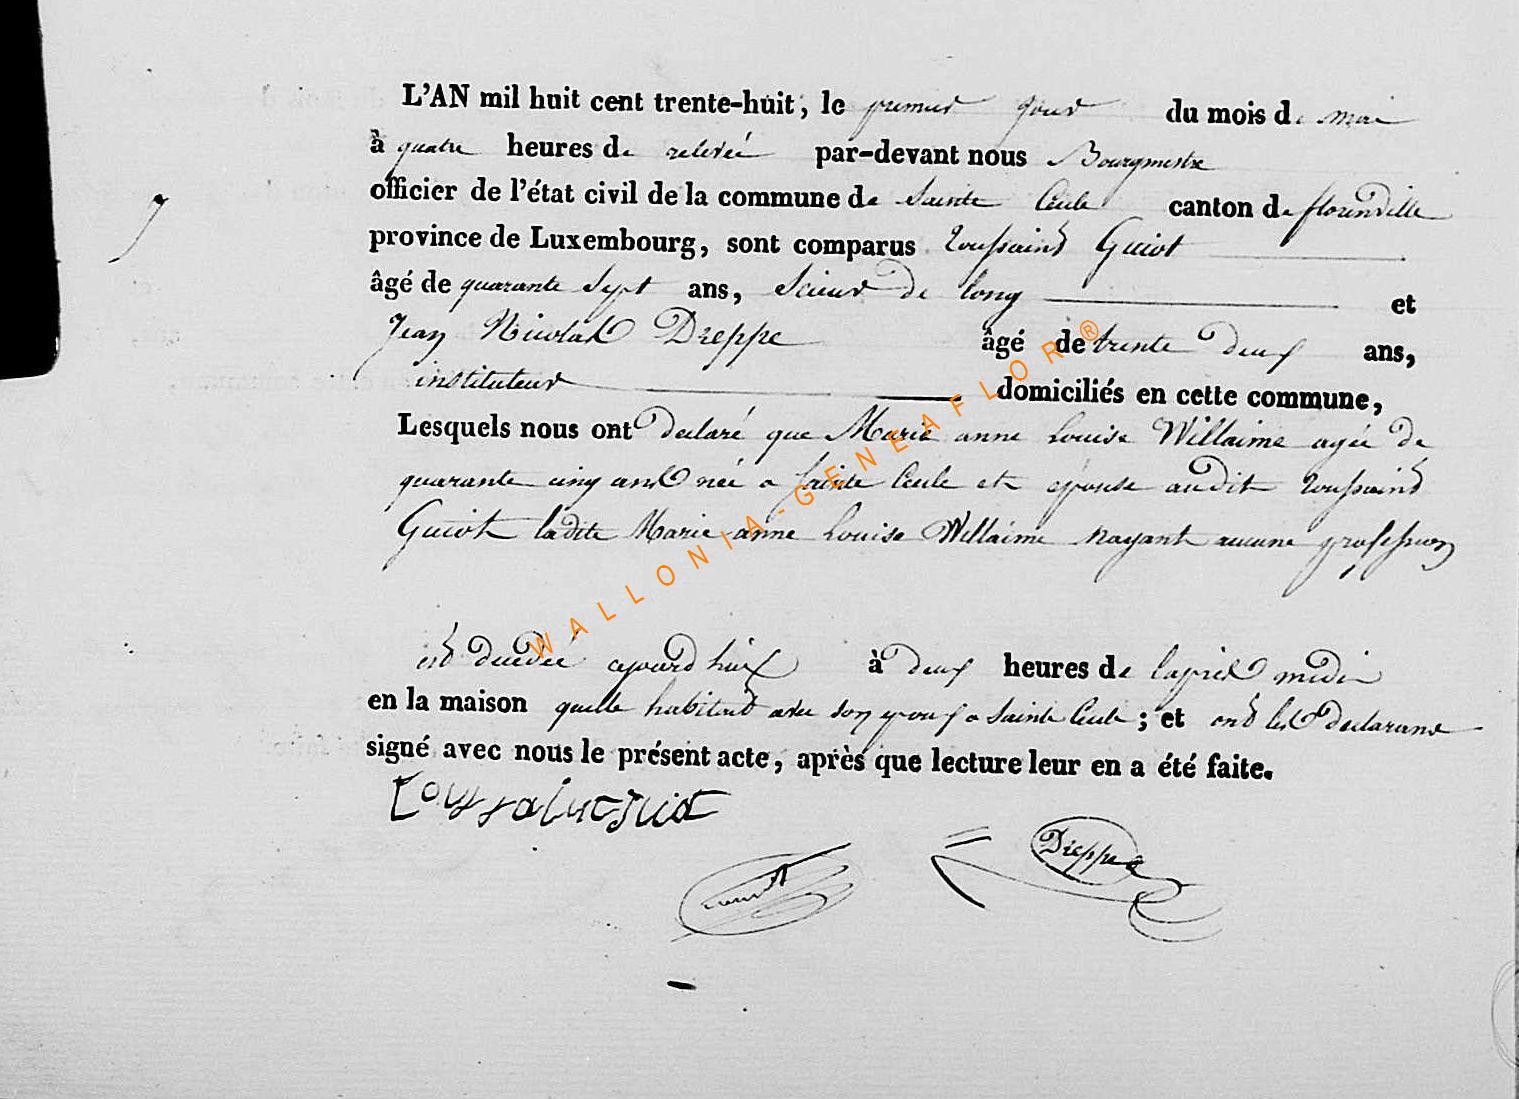 L'AN mil huit cent trente-huit, le premier jour du mois de mai
à quatre heures de relevée par-devant nous Bourgmestre
officier de l'état civil de la commune de Sainte Cécile canton de florenville
province de Luxembourg, sont comparus toussaint Guiot
âgé de quarante sept ans, Scieur de long et
Jean Nicolas Dreppe âgé de trente deux ans,
instituteur domiciliés en cette commune,
Lesquels nous ont déclaré que Marie anne Louise Willaime agée de
quarante cinq ans née a Sainte Cécile et épouse audit toussaint
Guiot ladite Marie anne Louise Willaime nayant aucune profession
est décédée ajourdhuix à deux heures de laprés midi
en la maison quelle habitait avec son epoux a Sainte Cécile ; et ont les déclarans
signé avec nous le présent acte, après que lecture leur en a été faite.
toussaint guiot
Dreppe
WALLONIA-GENEAFLOR®